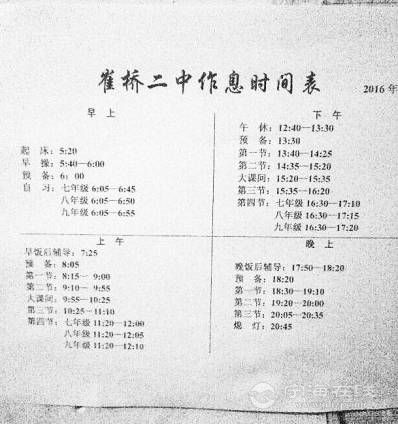 崔桥二中作息时间表
2016年
早上
起 床：5:20
早 操：5:40—6:00
预 备：6：00
自 习：七年级 6:05—6:45
八年级 6:05—6:50
九年级 6:05—6:55
下午
午 休：12:40—13:30
预 备：13:30
第一节：13:40—14:25
第二节：14:35—15:20
大课间：15:20—15:35
第三节：15:35—16:20
第四节：七年级 16:30—17:10
八年级 16:30—17:15
九年级 16:30—17:20
上午
早饭后辅导：7:25
预 备：8:05
第一节：8:15— 9:00
第二节：9:10— 9:55
大课间：9:55—10:25
第三节：10:25—11:10
第四节：七年级 11:20—12:00
八年级 11:20—12:05
九年级 11:20—12:10
晚上
晚饭后辅导：17:50—18:20
预 备：18:20
第一节：18:30—19:10
第二节：19:20—20:00
第三节：20:05—20:35
熄 灯：20:45